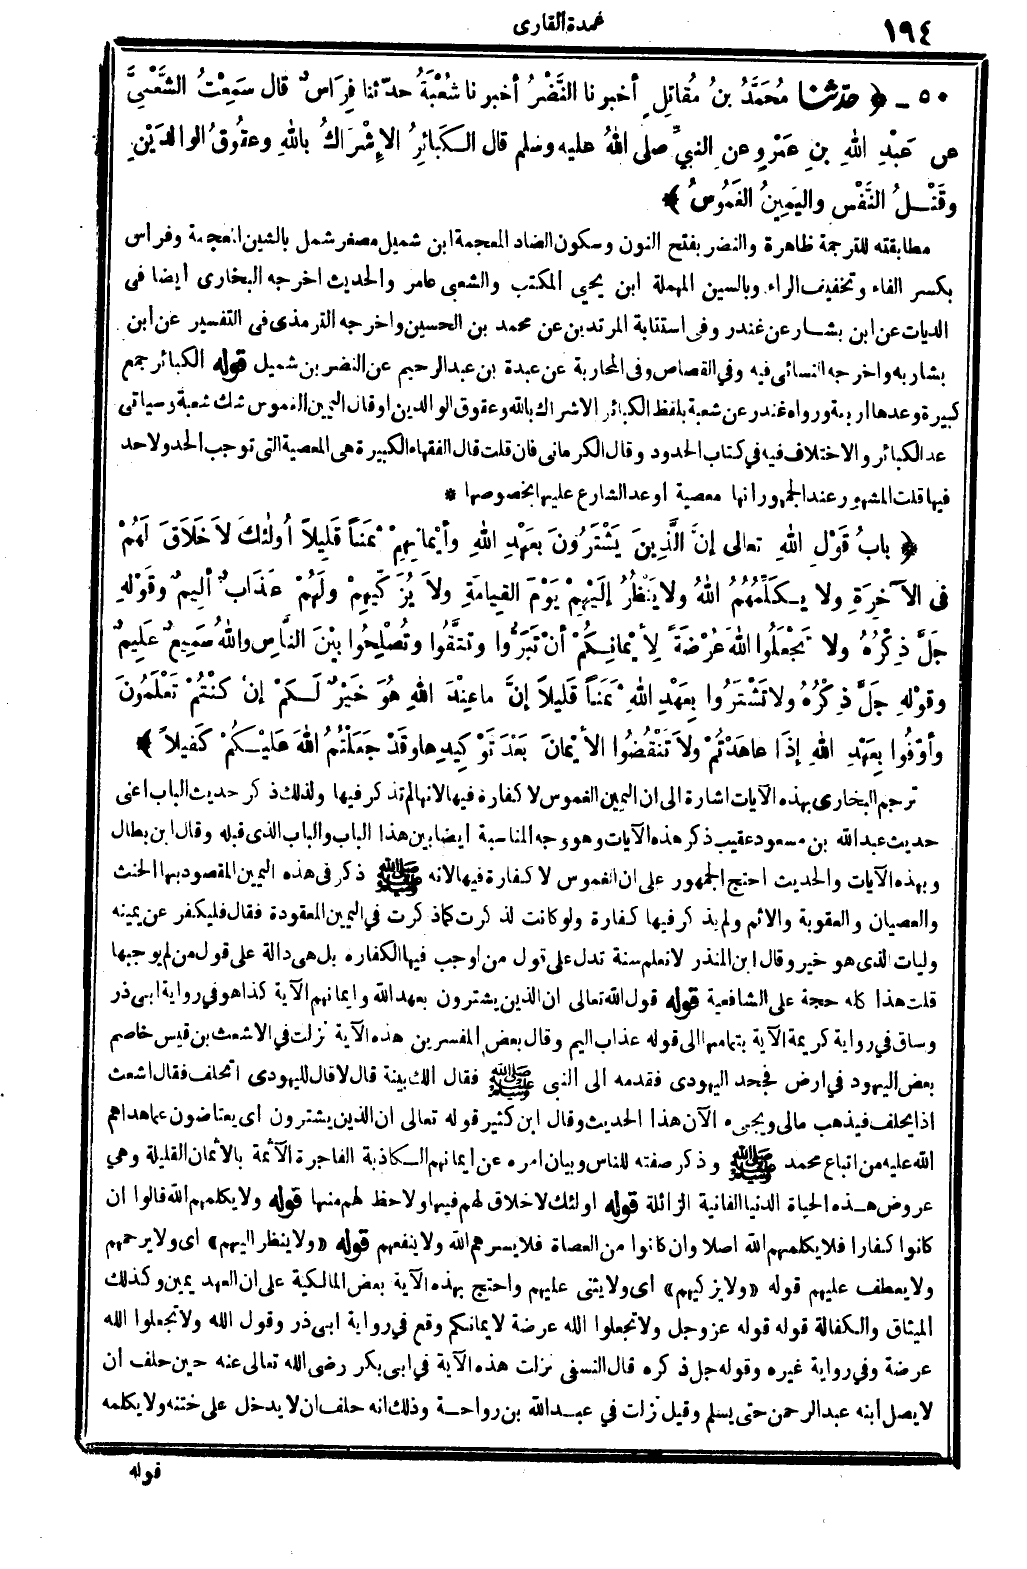 ١٩٤
عمدة القارى
٥٠ - ﴿ حدثنا مُحَمَّدُ بنُ مُقَاتِلٍ أخبرنا النَّضْرُ أخبرنا شُعْبَةُ حدّثنا فِرَاسٌ قال سَمِعْتُ الشَّعْبِيَّ
عن عَبْدِ اللهِ بنِ عَمْرٍو عنِ النبيِّ صلى اللهُ عليه وسلم قال الكَبائِرُ الإِشْرَاكُ بِاللهِ وعقُوقُ الوالِدَيْنِ
وقَتْلُ النَّفْسِ واليَمِينُ الغَمُوسُ ﴾
مطابقته للترجمة ظاهرة والنضر بفتح النون وسكون الضاد المعجمة ابن شميل مصغر شمل بالشين المعجمة وفراس
بكسر الفاء وتخفيف الراء وبالسين المهملة ابن يحيى المكتب والشعبى عامر والحديث اخرجه البخارى ايضا فى
الديات عن ابن بشار عن غندر وفى استتابة المرتدين عن محمد بن الحسين واخرجه الترمذى فى التفسير عن ابن
بشار به واخرجه النسائى فيه وفي القصاص وفى المحاربة عن عبدة بن عبدالرحيم عن النضر بن شميل قوله الكبائر جمع
كبيرة وعدها اربعة ورواه غندر عن شعبة بلفظ الكبائر الاشراك بالله وعقوق الوالدين او قال اليمين الغموس شك شعبة وسياتى
عد الكبائر والاختلاف فيه في كتاب الحدود وقال الكرمانى فان قلت قال الفقهاء الكبيرة هى المعصية التى توجب الحد ولا حد
فيها قلت المشهور عند الجمهور انها معصية اوعد الشارع عليها بخصوصها *
﴿ بابُ قَوْلِ اللهِ تعالى إنَّ الَّذِينَ يَشْتَرُونَ بِعَهْدِ اللهِ وأيْمانِهِمْ ثَمَناً قَلِيلاً أُولٰئِكَ لاَ خَلاَقَ لَهُمْ
فى الآخِرَةِ ولا يُكَلِّمُهُمُ اللهُ ولا يَنْظُرُ إلَيْهِمْ يَوْمَ القِيامَةِ ولاَ يُزَكِّيهِمْ ولَهُمْ عَذَابٌ ألِيمٌ وقَوْلِهِ
جَلَّ ذِكْرُهُ ولا تَجْعَلُوا اللهَ عُرْضَةً لِأَيْمانِكُمْ أنْ تَبَرُّوا وتَتَّقُوا وتُصْلِحُوا بيْنَ النَّاسِ واللهُ سَمِيعٌ عَلِيمٌ
وقوْلِهِ جَلَّ ذِكْرُهُ ولا تَشْتَرُوا بِعَهْدِ اللهِ ثَمَناً قَلِيلاً إنَّ ماعِنْدَ اللهِ هُوَ خَيْرٌ لَكُمْ إنْ كُنْتُمْ تَعْلَمُونَ
وأوْفُوا بِعَهْدِ اللهِ إذَا عاهَدْتُمْ ولاَ تَنْقُضُوا الأيْمانَ بَعْدَ تَوْكِيدِها وقَدْ جَعَلْتُمُ اللهَ عَلَيْكُمْ كَفِيلاً ﴾
ترجم البخارى بهذه الآيات اشارة الى ان اليمين الغموس لا كفارة فيها لانها لم تذكر فيها ولذلك ذكر حديث الباب اعنى
حديث عبدالله بن مسعود عقيب ذكر هذه الآيات وهو وجه المناسبة ايضا بين هذا الباب والباب الذى قبله وقال ابن بطال
وبهذه الآيات والحديث احتج الجمهور على ان الغموس لا كفارة فيها لانه ﷺ ذكر فى هذه اليمين المقصود بها الحنث
والعصيان والعقوبة والاثم ولم يذكر فيها كفارة ولو كانت لذكرت كما ذكرت في اليمين المعقودة فقال فليكفر عن يمينه
وليات الذى هو خير وقال ابن المنذر لانعلم سنة تدل على قول من اوجب فيها الكفارة بل هى دالة على قول من لم يوجبها
قلت هذا كله حجة على الشافعية قوله قول الله تعالى ان الذين يشترون بعهد الله وايمانهم الآية كذا هو في رواية ابى ذر
وساق في رواية كريمة الآية بتمامها الى قوله عذاب اليم وقال بعض المفسرين هذه الآية نزلت في الاشعث بن قيس خاصم
بعض اليهود في ارض فجحد اليهودى فقدمه الى النبى ﷺ فقال الك بينة قال لا قال لليهودى اتحلف فقال اشعث
اذا يحلف فيذهب مالى ويجىء الآن هذا الحديث وقال ابن كثير قوله تعالى ان الذين يشترون اى يعتاضون عما هداهم
الله عليه من اتباع محمد ﷺ وذكر صفته للناس وبيان امره عن ايمانهم الكاذبة الفاجرة الآثمة بالأثمان القليلة وهي
عروض هذه الحياة الدنيا الفانية الزائلة قوله اولئك لاخلاق لهم فيها ولاحظ لهم منها قوله ولايكلمهم الله قالوا ان
كانوا كفارا فلا يكلمهم الله اصلا وان كانوا من العصاة فلا يسرهم الله ولا ينفعهم قوله «ولا ينظر اليهم» اى ولايرحمهم
ولا يعطف عليهم قوله «ولا يزكيهم» اى ولا يثنى عليهم واحتج بهذه الآية بعض المالكية على ان العهد يمين وكذلك
الميثاق والكفالة قوله قوله عزوجل ولا تجعلوا الله عرضة لايمانكم وقع في رواية ابى ذر وقول الله ولا تجعلوا الله
عرضة وفي رواية غيره وقوله جل ذكره قال النسفى نزلت هذه الآية في ابى بكر رضى الله تعالى عنه حين حلف أن
لا يصل أبنه عبدالرحمن حتى يسلم وقيل نزلت في عبدالله بن رواحة وذلك انه حلف ان لا يدخل على ختنه ولا يكلمه
قوله